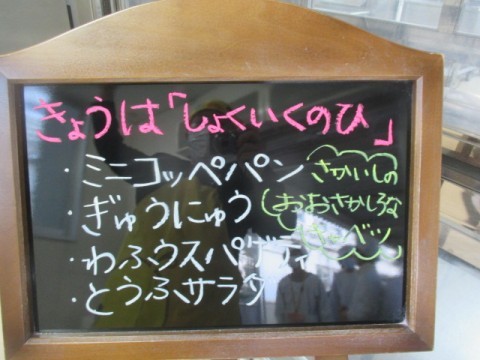 きょうは「しょくいくのひ」
・ミニコッペパン
・ぎゅうにゅう
・わふうスパゲティ
・とうふサラダ
さかいしの
おおさかしろな
キャベツ